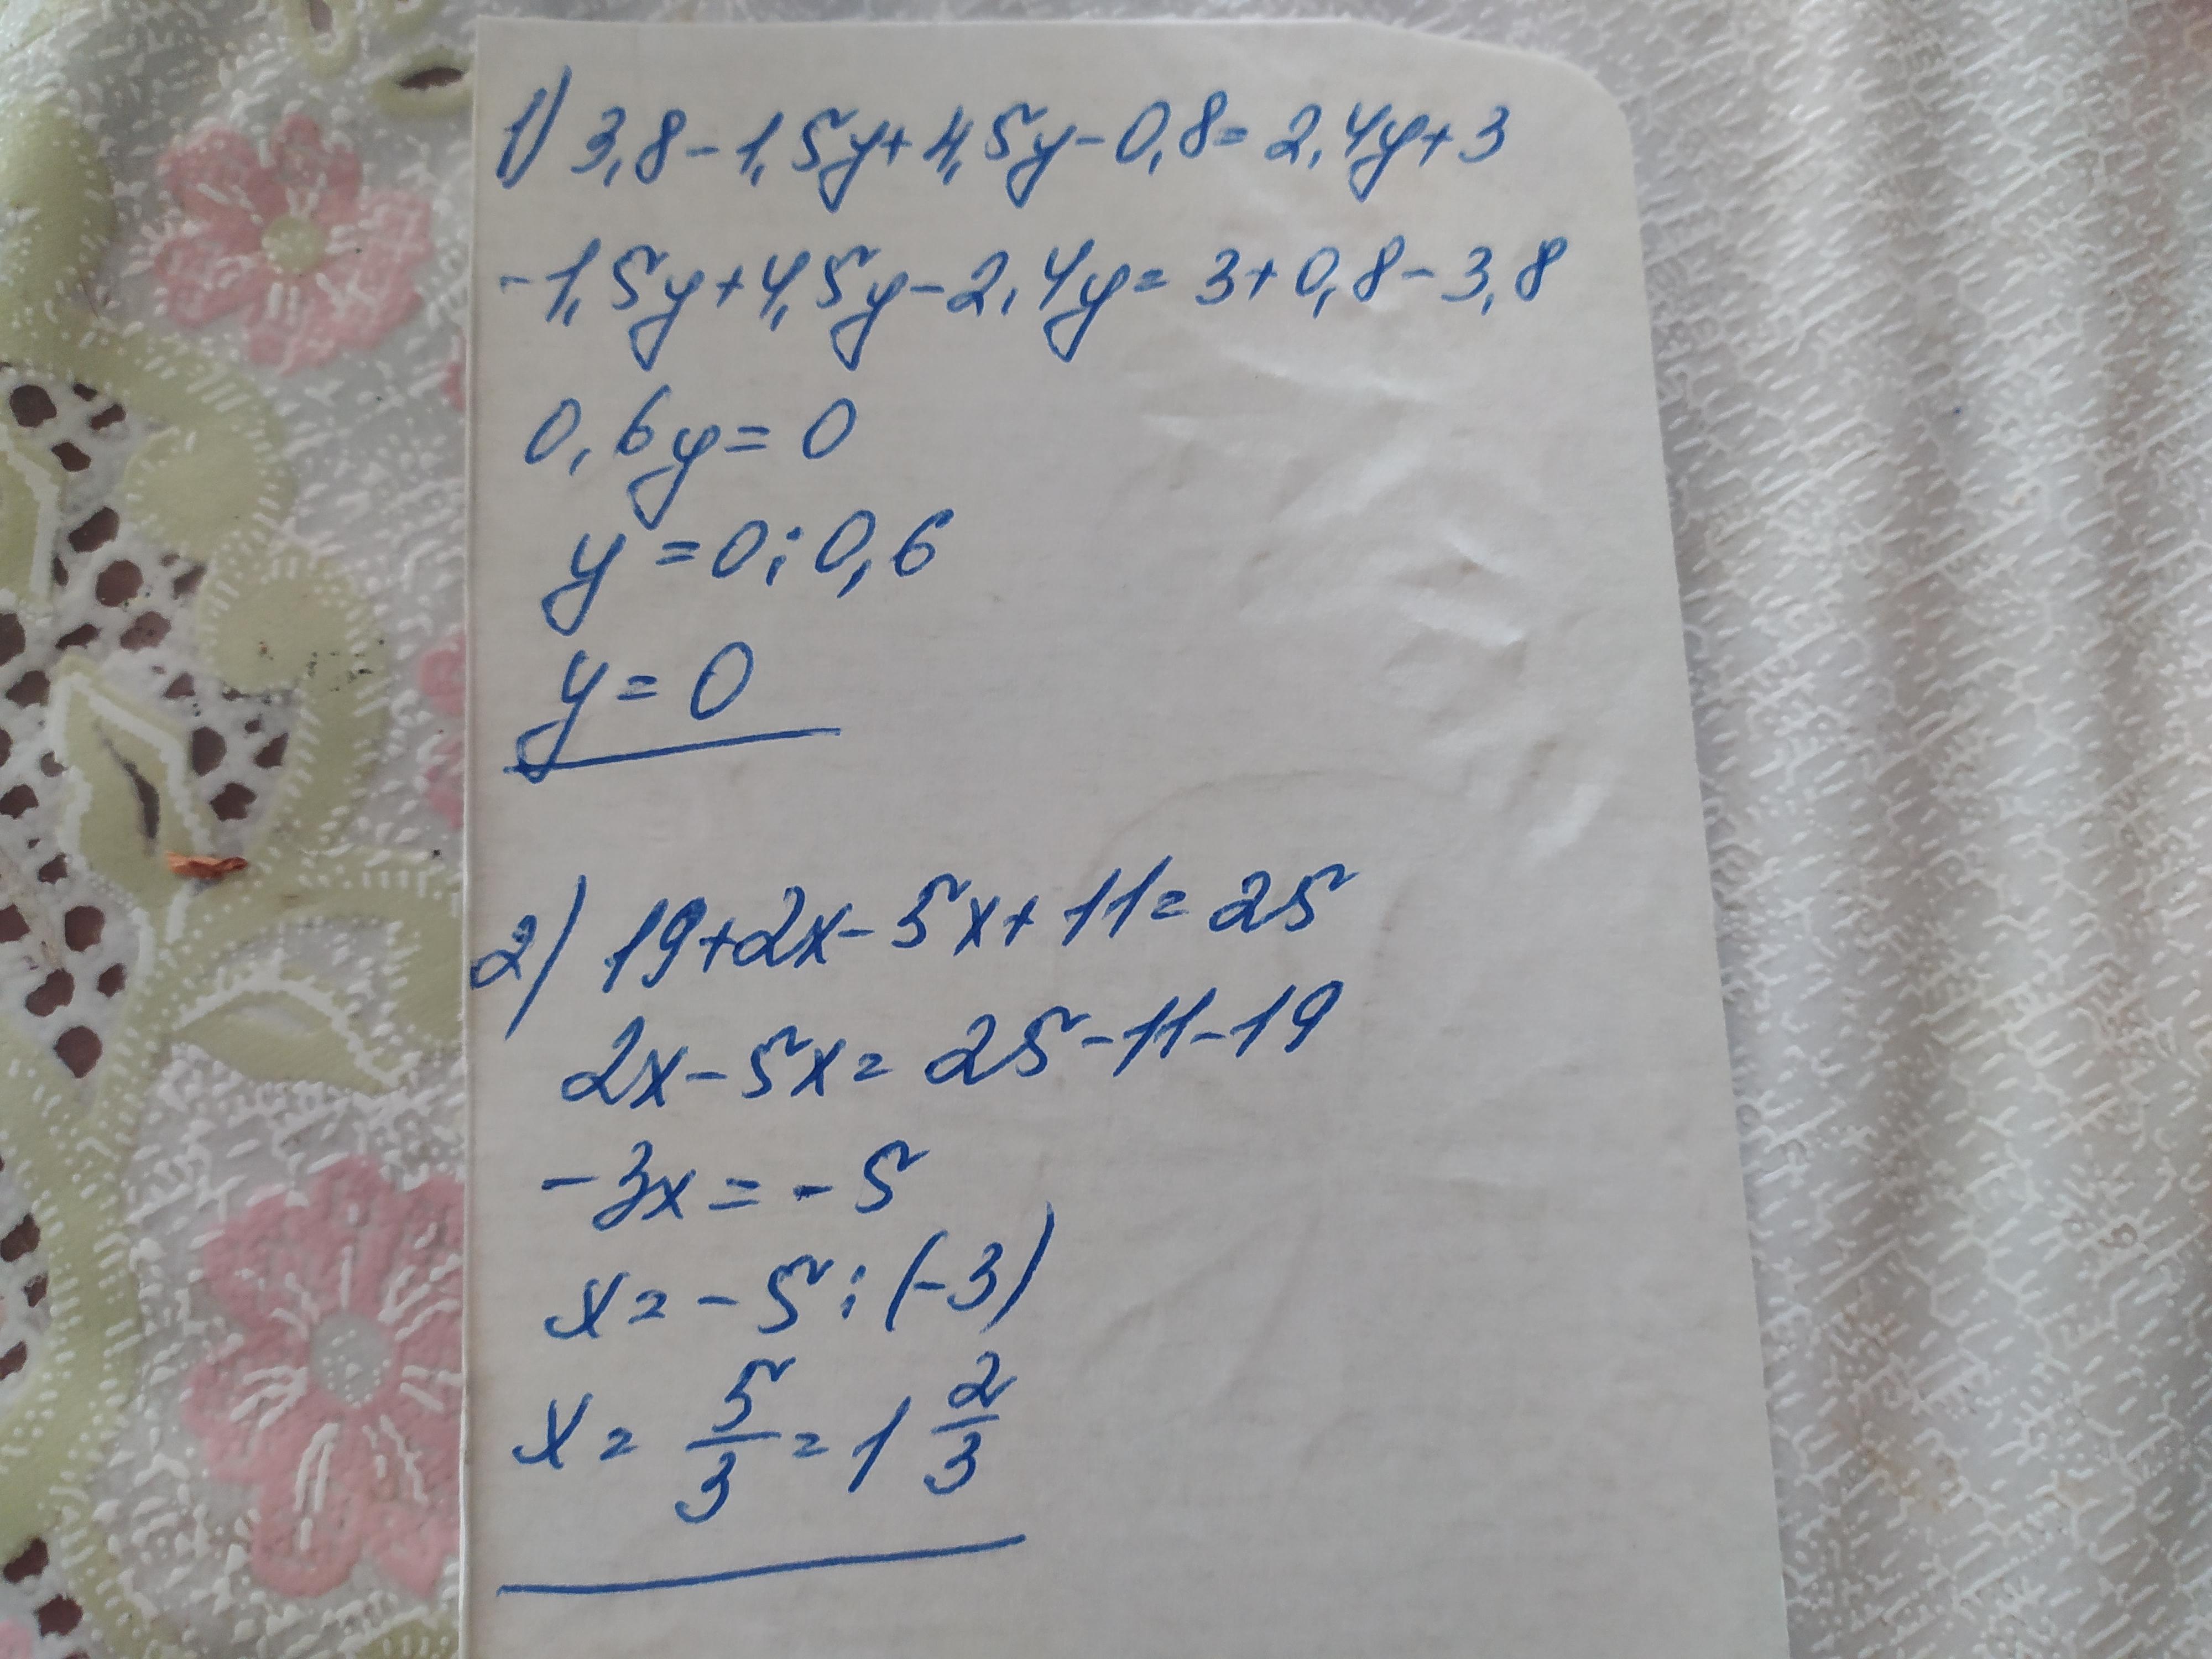 1) 3,8-1,5y+4,5y-0,8=2,4y+3
-1,5y+4,5y-2,4y=3+0,8-3,8
0,6y=0
y=0:0,6
y=0
2) 19+2x-5x+11=25
2x-5x=25-11-19
-3x=-5
x=-5:(-3)
x=5/3=1 2/3